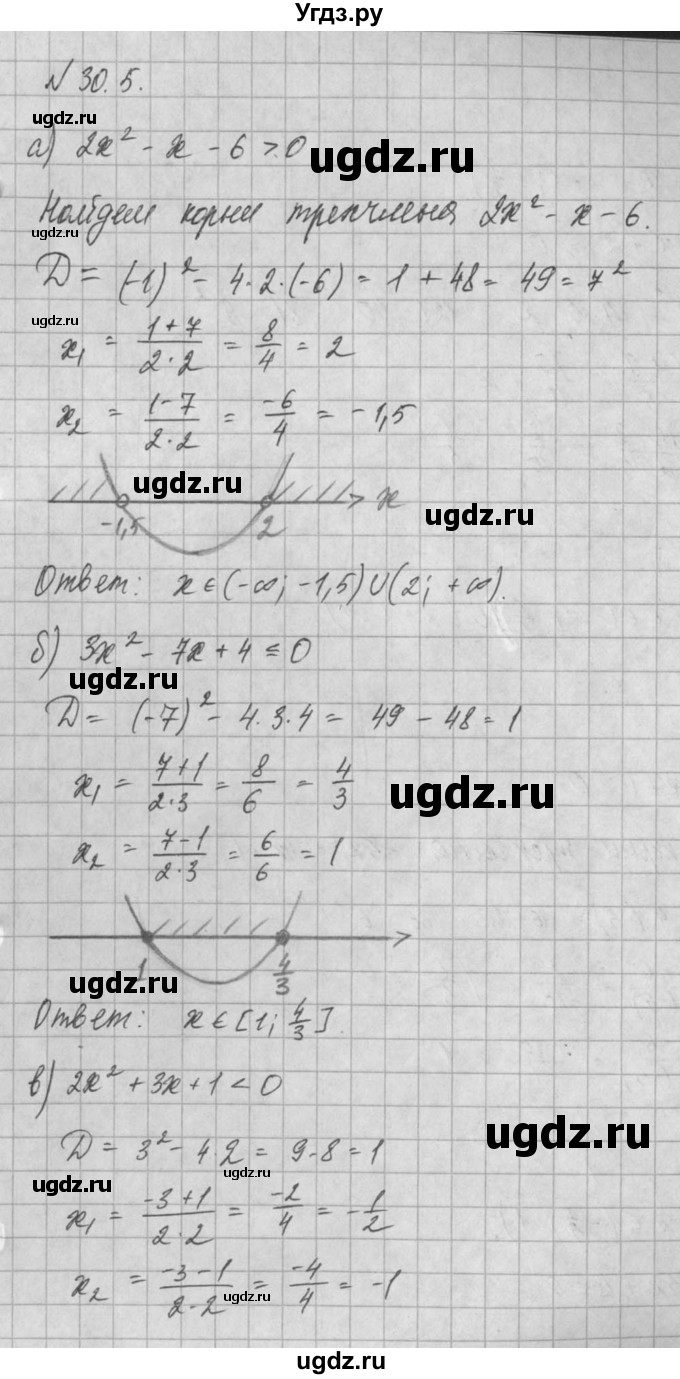 Угдз.ру
№ 30.5.
ugdz.ru
а) 2x² - x - 6 > 0
ugdz.ru
Найдем корни трехчлена 2x² - x - 6.
ugdz.ru
D = (-1)² - 4·2·(-6) = 1 + 48 = 49 = 7²
ugdz.ru
x₁ = (1+7)/(2·2) = 8/4 = 2
x₂ = (1-7)/(2·2) = -6/4 = -1,5
ugdz.ru
x
-1,5 2
ugdz.ru
Ответ: x ∈ (-∞; -1,5) ∪ (2; +∞).
б) 3x² - 7x + 4 ≤ 0
ugdz.ru
D = (-7)² - 4·3·4 = 49 - 48 = 1
x₁ = (7+1)/(2·3) = 8/6 = 4/3
ugdz.ru
x₂ = (7-1)/(2·3) = 6/6 = 1
1 4/3
ugdz.ru
Ответ: x ∈ [1; 4/3].
в) 2x² + 3x + 1 < 0
ugdz.ru
D = 3² - 4·2 = 9 - 8 = 1
ugdz.ru
ugdz.ru
x₁ = (-3+1)/(2·2) = -2/4 = -1/2
x₂ = (-3-1)/(2·2) = -4/4 = -1
ugdz.ru
ugdz.ru